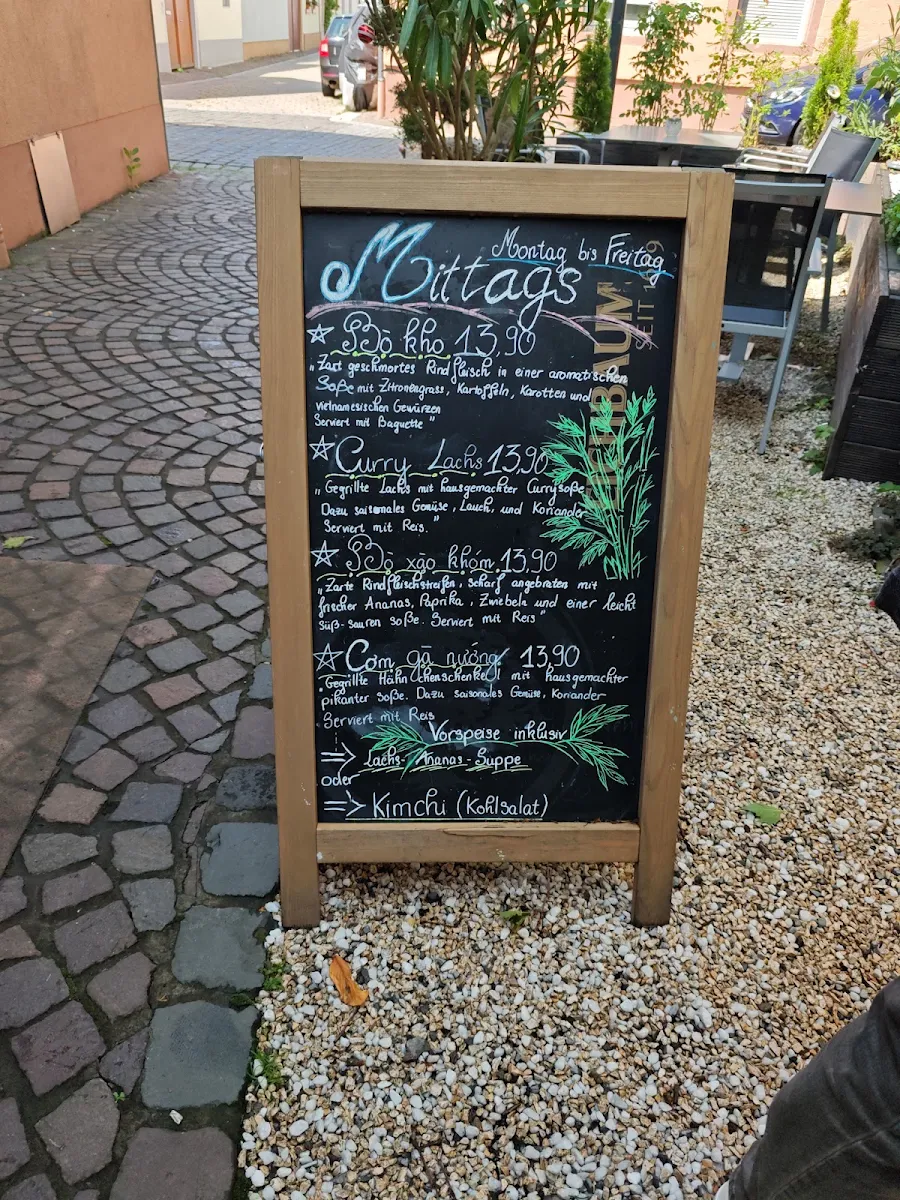 Montag bis Freitag
Mittags
Bò kho 13,90
"Zart geschmortes Rindfleisch in einer aromatischen
Soße mit Zitronengrass, Kartoffeln, Karotten und
vietnamesischen Gewürzen
Serviert mit Baguette"
Curry Lachs 13,90
"Gegrillte Lachs mit hausgemachter Currysoße
Dazu saisonales Gemüse, Lauch, und Koriander
Serviert mit Reis."
Bò xào khóm 13,90
"Zarte Rindfleischstreifen, scharf angebraten mit
frischer Ananas, Paprika, Zwiebeln und einer leicht
süß-sauren Soße. Serviert mit Reis"
Cơm gà nướng 13,90
"Gegrillte Hähnchenschenkel mit hausgemachter
pikanter Soße. Dazu saisonales Gemüse, Koriander
Serviert mit Reis
Vorspeise inklusiv
=> Lachs-Ananas-Suppe
oder
=> Kimchi (Kohlsalat)
EICHBAUM
SEIT 1679